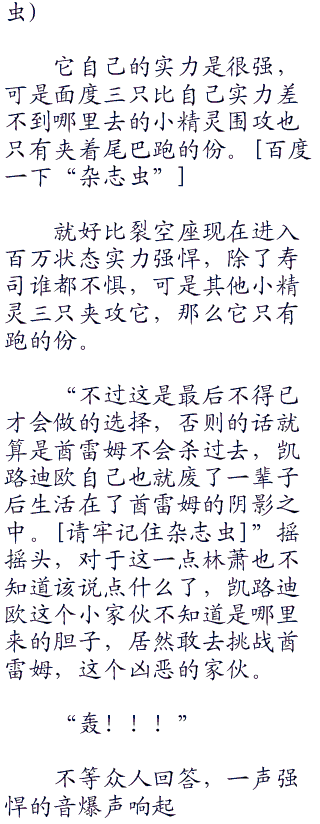 虫）
它自己的实力是很强，
可是面度三只比自己实力差
不到哪里去的小精灵围攻也
只有夹着尾巴跑的份。[百度
一下“杂志虫”]
就好比裂空座现在进入
百万状态实力强悍，除了寿
司谁都不惧，可是其他小精
灵三只夹攻它，那么它只有
跑的份。
“不过这是最后不得已
才会做的选择，否则的话就
算是酋雷姆不会杀过去，凯
路迪欧自己也就废了一辈子
后生活在了酋雷姆的阴影之
中。[请牢记住杂志虫]”摇
摇头，对于这一点林萧也不
知道该说点什么了，凯路迪
欧这个小家伙不知道是哪里
来的胆子，居然敢去挑战酋
雷姆，这个凶恶的家伙。
“轰！！！”
不等众人回答，一声强
悍的音爆声响起